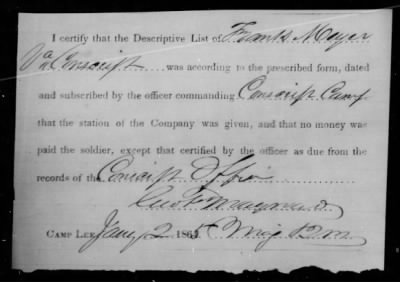 I certify that the Descriptive List of Frank Meyer
Va Conscript was according to the prescribed form, dated
and subscribed by the officer commanding Conscript Camp
that the station of the Company was given, and that no money was
paid the soldier, except that certified by the officer as due from the
records of the Conscript Office
Geo F Maynard
CAMP LEE Jany 2 1865 Maj & QM